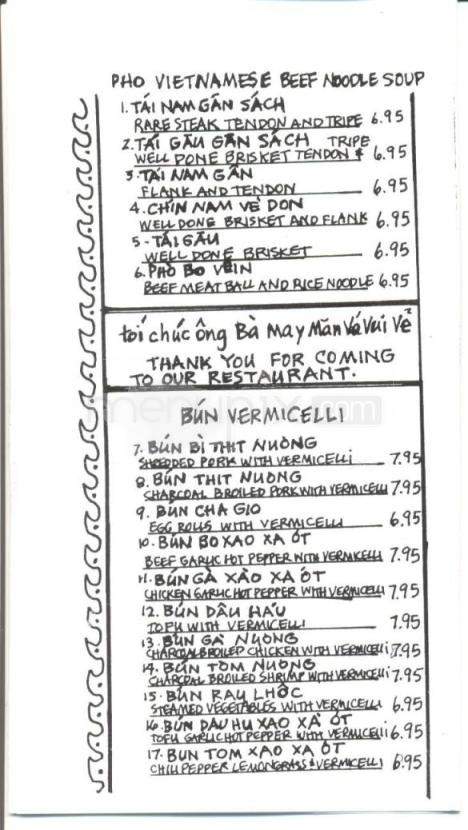 PHO VIETNAMESE BEEF NOODLE SOUP
1. TÁI NAM GÂN SÁCH
RARE STEAK TENDON AND TRIPE 6.95
2. TÁI GÂU GÂN SÁCH TRIPE
WELL DONE BRISKET TENDON & 6.95
3. TÁI NAM GÂN
FLANK AND TENDON 6.95
4. CHÍN NAM VÈ DON
WELL DONE BRISKET AND FLANK 6.95
5 - TÁI GÂU
WELL DONE BRISKET 6.95
6. PHỞ BO VEIN
BEEF MEAT BALL AND RICE NOODLE 6.95
tôi chúc ông Bà May Mắn Và Vui Vẻ
THANK YOU FOR COMING
TO OUR RESTAURANT.
BÚN VERMICELLI
7. BÚN BÌ THIT NUONG
SHREDDED PORK WITH VERMICELLI 7.95
8. BÚN THIT NUONG
CHARCOAL BROILED PORK WITH VERMICELLI 7.95
9. BÚN CHA GIO
EGG ROLLS WITH VERMICELLI 6.95
10. BÚN BO XAO XA ÓT
BEEF GARLIC HOT PEPPER WITH VERMICELLI 7.95
11. BÚN GÀ XÀO XA ÓT
CHICKEN GARLIC HOT PEPPER WITH VERMICELLI 7.95
12. BÚN DÂU HÁU
TOFU WITH VERMICELLI 7.95
13. BUN GA NUONG
CHARCOAL BROILED CHICKEN WITH VERMICELLI 7.95
14. BÚN TÔM NUONG
CHARCOAL BROILED SHRIMP WITH VERMICELLI 7.95
15. BÚN RAU LHÔC
STEAMED VEGETABLES WITH VERMICELLI 6.95
16. BÚN DAU HU XAO XẢ ÓT
TOFU GARLIC HOT PEPPER WITH VERMICELLI 6.95
17. BUN TOM XAO XA ÓT
CHILI PEPPER LEMONGRASS & VERMICELLI 6.95